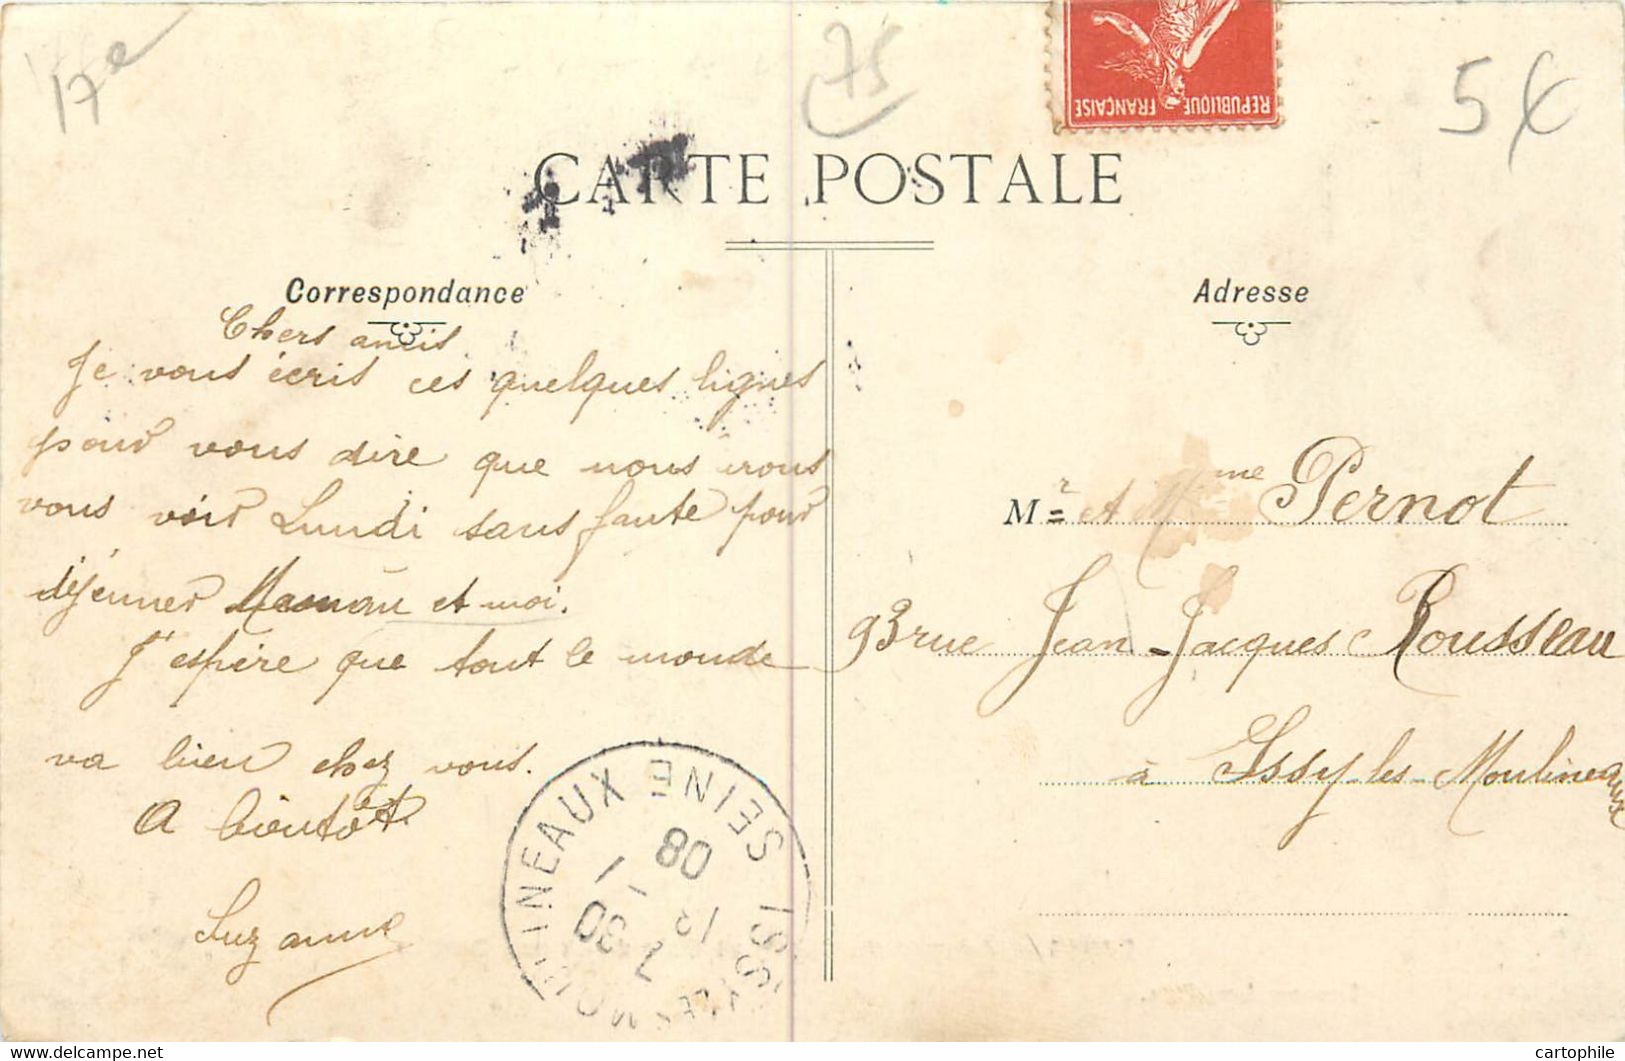 17e
75
5€
REPUBLIQUE FRANÇAISE
CARTE POSTALE
Correspondance
Adresse
Chers amis
Je vous écris ces quelques lignes
pour vous dire que nous irons
vous voir Lundi sans faute pour
déjeuner Maman et moi.
J'espère que tout le monde
va bien chez vous.
A bientôt
Suzanne
Mr et Mme Pernot
93 rue Jean-Jacques Rousseau
à Issy-les-Moulineaux
ISSY-LES-MOULINEAUX SEINE
7 30
08
cartophile